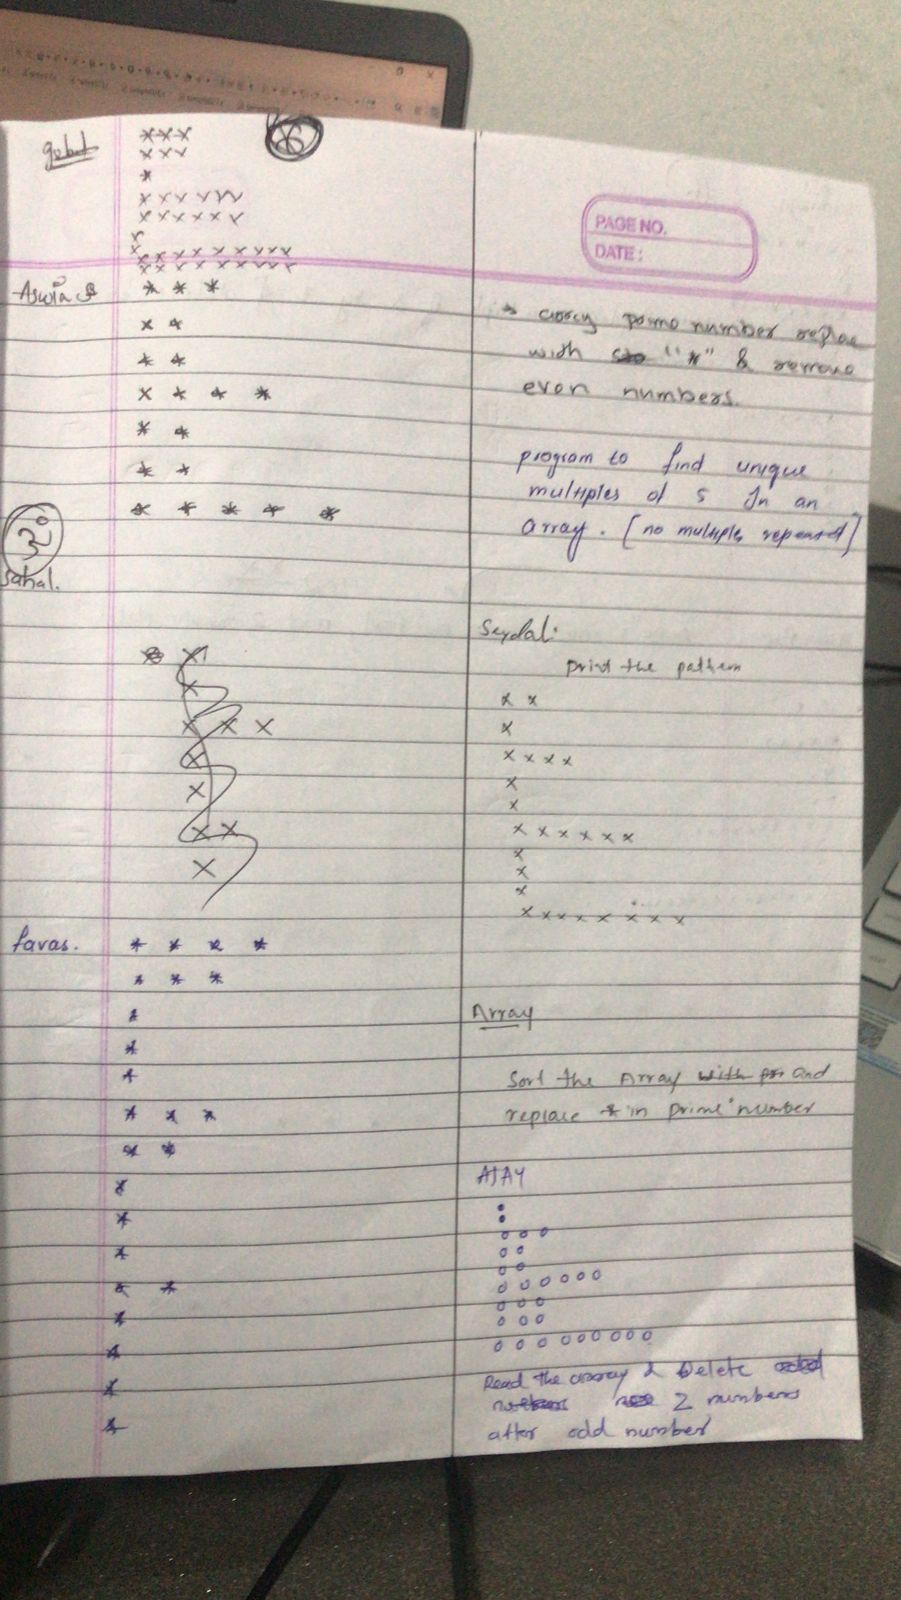 ***
xxx
*
xxxxxx
xxxxxx
xxxxxxxx
xxxxxxxxx
Aswin
* * *
x *
* *
x * * *
* *
* *
* * * * *
sahal.
x
x
x x x
x
x
x x
x
favas.
* * * *
* * *
*
*
*
* * *
* *
*
*
*
* *
*
*
*
*
PAGE NO.
DATE:
number replace
with "*" & remove
even numbers.
program to find unique
multiples of 5 In an
array. [no multiple repeated]
print the pattern
x x
x
x x x x
x
x
x x x x x x
x
x
x
x x x x x x x x
Array
Sort the Array and
replace * in prime number
AJAY
•
•
o o o
o o
o o
o o o o o o
o o o
o o o
o o o o o o o o o
Read the array & Delete
2 numbers
after odd number